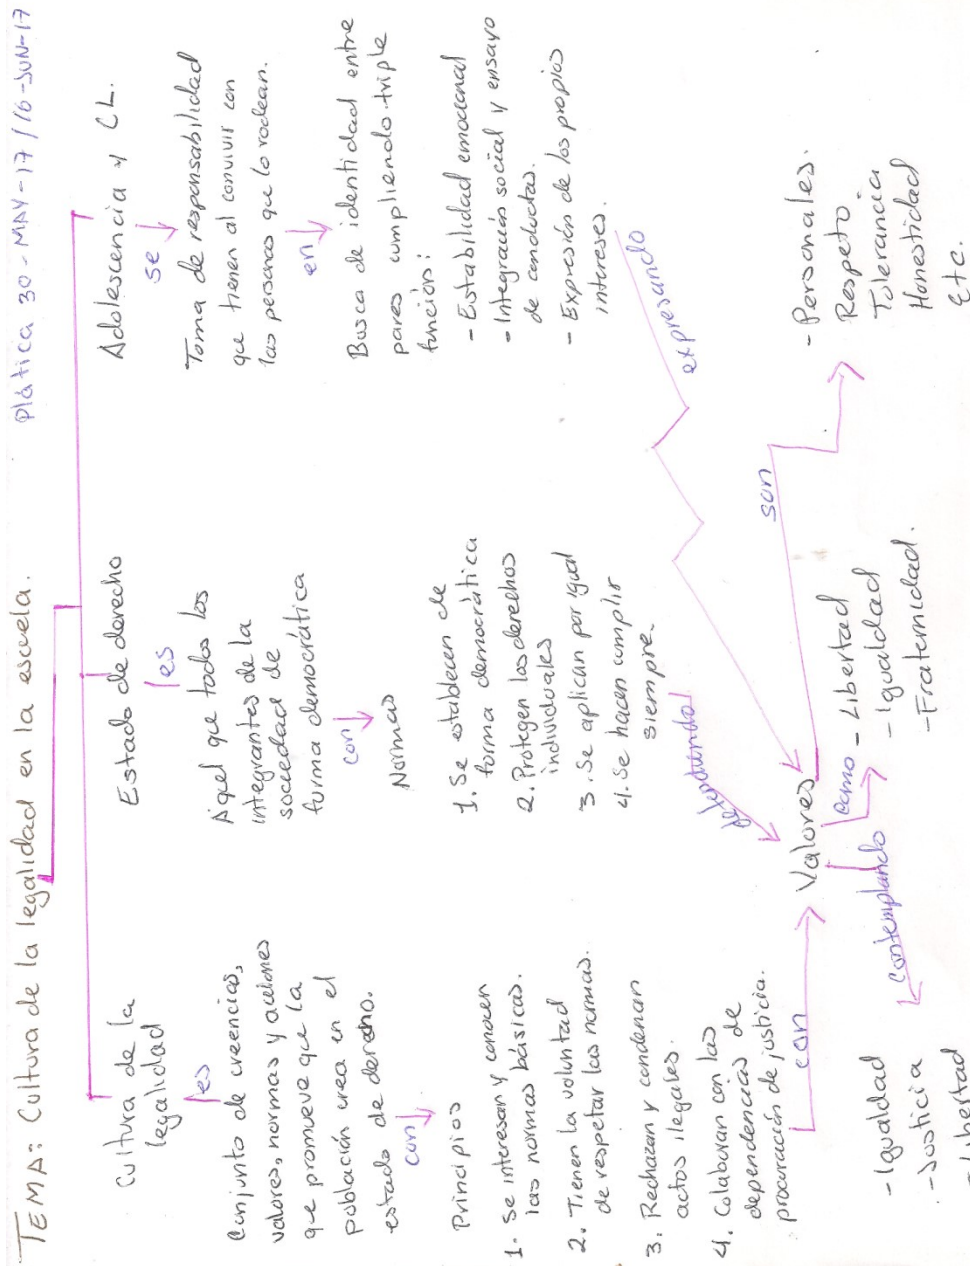 TEMA: Cultura de la legalidad en la escuela.
Plática 30-MAY-17/16-JUN-17
Cultura de la
legalidad
es
Conjunto de creencias,
valores, normas y acciones
que promueve que la
población crea en el
estado de derecho.
con
Principios
1. Se interesan y conocen
las normas básicas.
2. Tienen la voluntad
de respetar las normas.
3. Rechazan y condenan
actos ilegales.
4. Colaboran con las
dependencias de
procuración de justicia.
con
Estado de derecho
es
Aquel que todos los
integrantes de la
sociedad de
forma democrática
con
Normas
1. Se establecen de
forma democrática
2. Protegen los derechos
individuales
3. Se aplican por igual
4. Se hacen cumplir
siempre.
Adolescencia y CL.
se
Toma de responsabilidad
que tienen al convivir con
las personas que lo rodean.
en
Busca de identidad entre
pares cumpliendo triple
función:
- Estabilidad emocional
- Integración social y ensayo
de conductas.
- Expresión de los propios
intereses.
expresando
Valores
como
- Libertad
- Igualdad
- Fraternidad.
contemplando
- Igualdad
- Justicia
- Libertad
son
- Personales.
Respeto
Tolerancia
Honestidad
Etc.